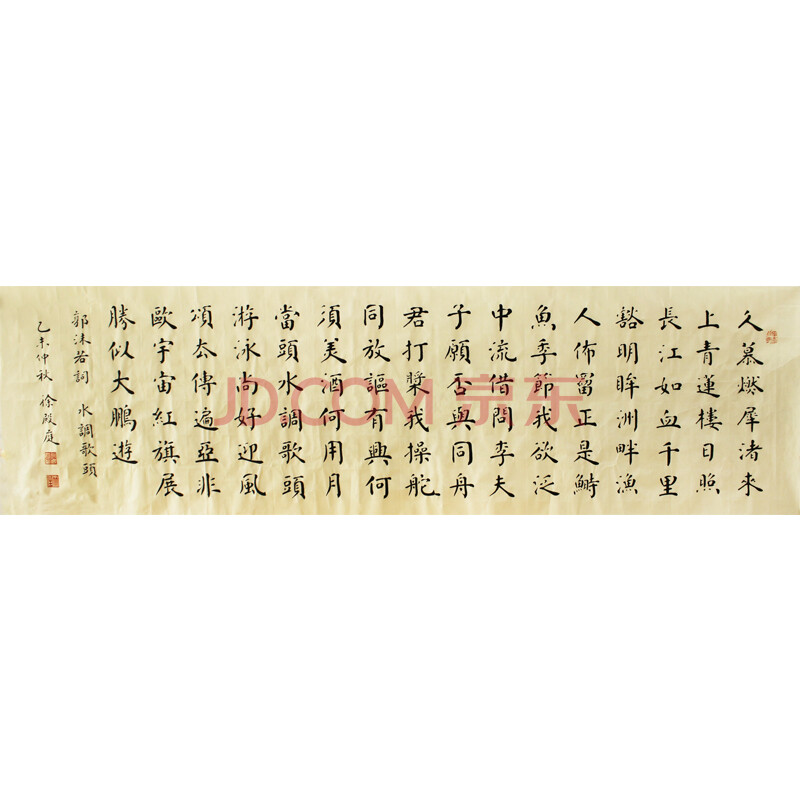 久慕燃犀渚來
上青蓮樓日照
長江如血千里
豁明眸洲畔漁
人佈罶正是鰣
魚季節我欲泛
中流借問李夫
子願否與同舟
君打槳我操舵
同放謳有興何
須美酒何用月
當頭水調歌頭
游泳尚好迎風
頌夲傳遍亞非
歐宇宙紅旗展
勝似大鵬遊
郭沫若詞 水調歌頭
乙未仲秋 徐殿庭
JDCOM京东